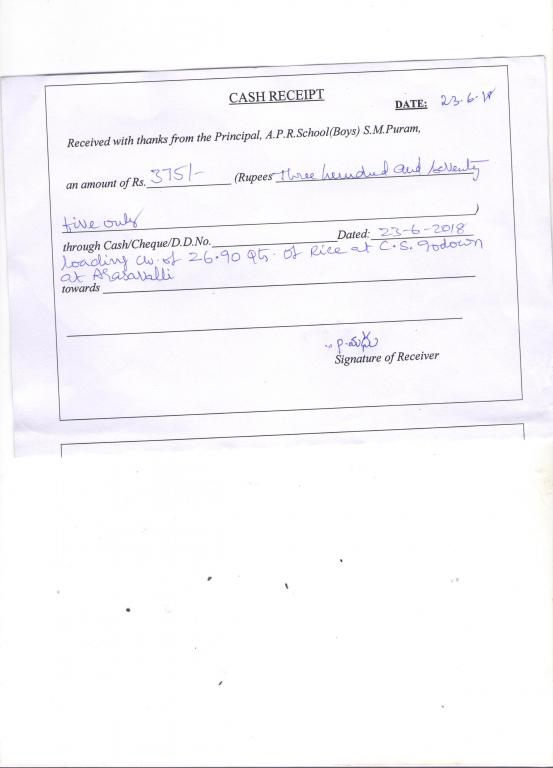 CASH RECEIPT
DATE: 23-6-18
Received with thanks from the Principal, A.P.R.School(Boys) S.M.Puram,
an amount of Rs. 375/- (Rupees Three hundred and seventy
five only )
through Cash/Cheque/D.D.No. Dated: 23-6-2018
loading of 26.90 Qts. of Rice at C.S. godown
at Arasavalli
towards
Signature of Receiver